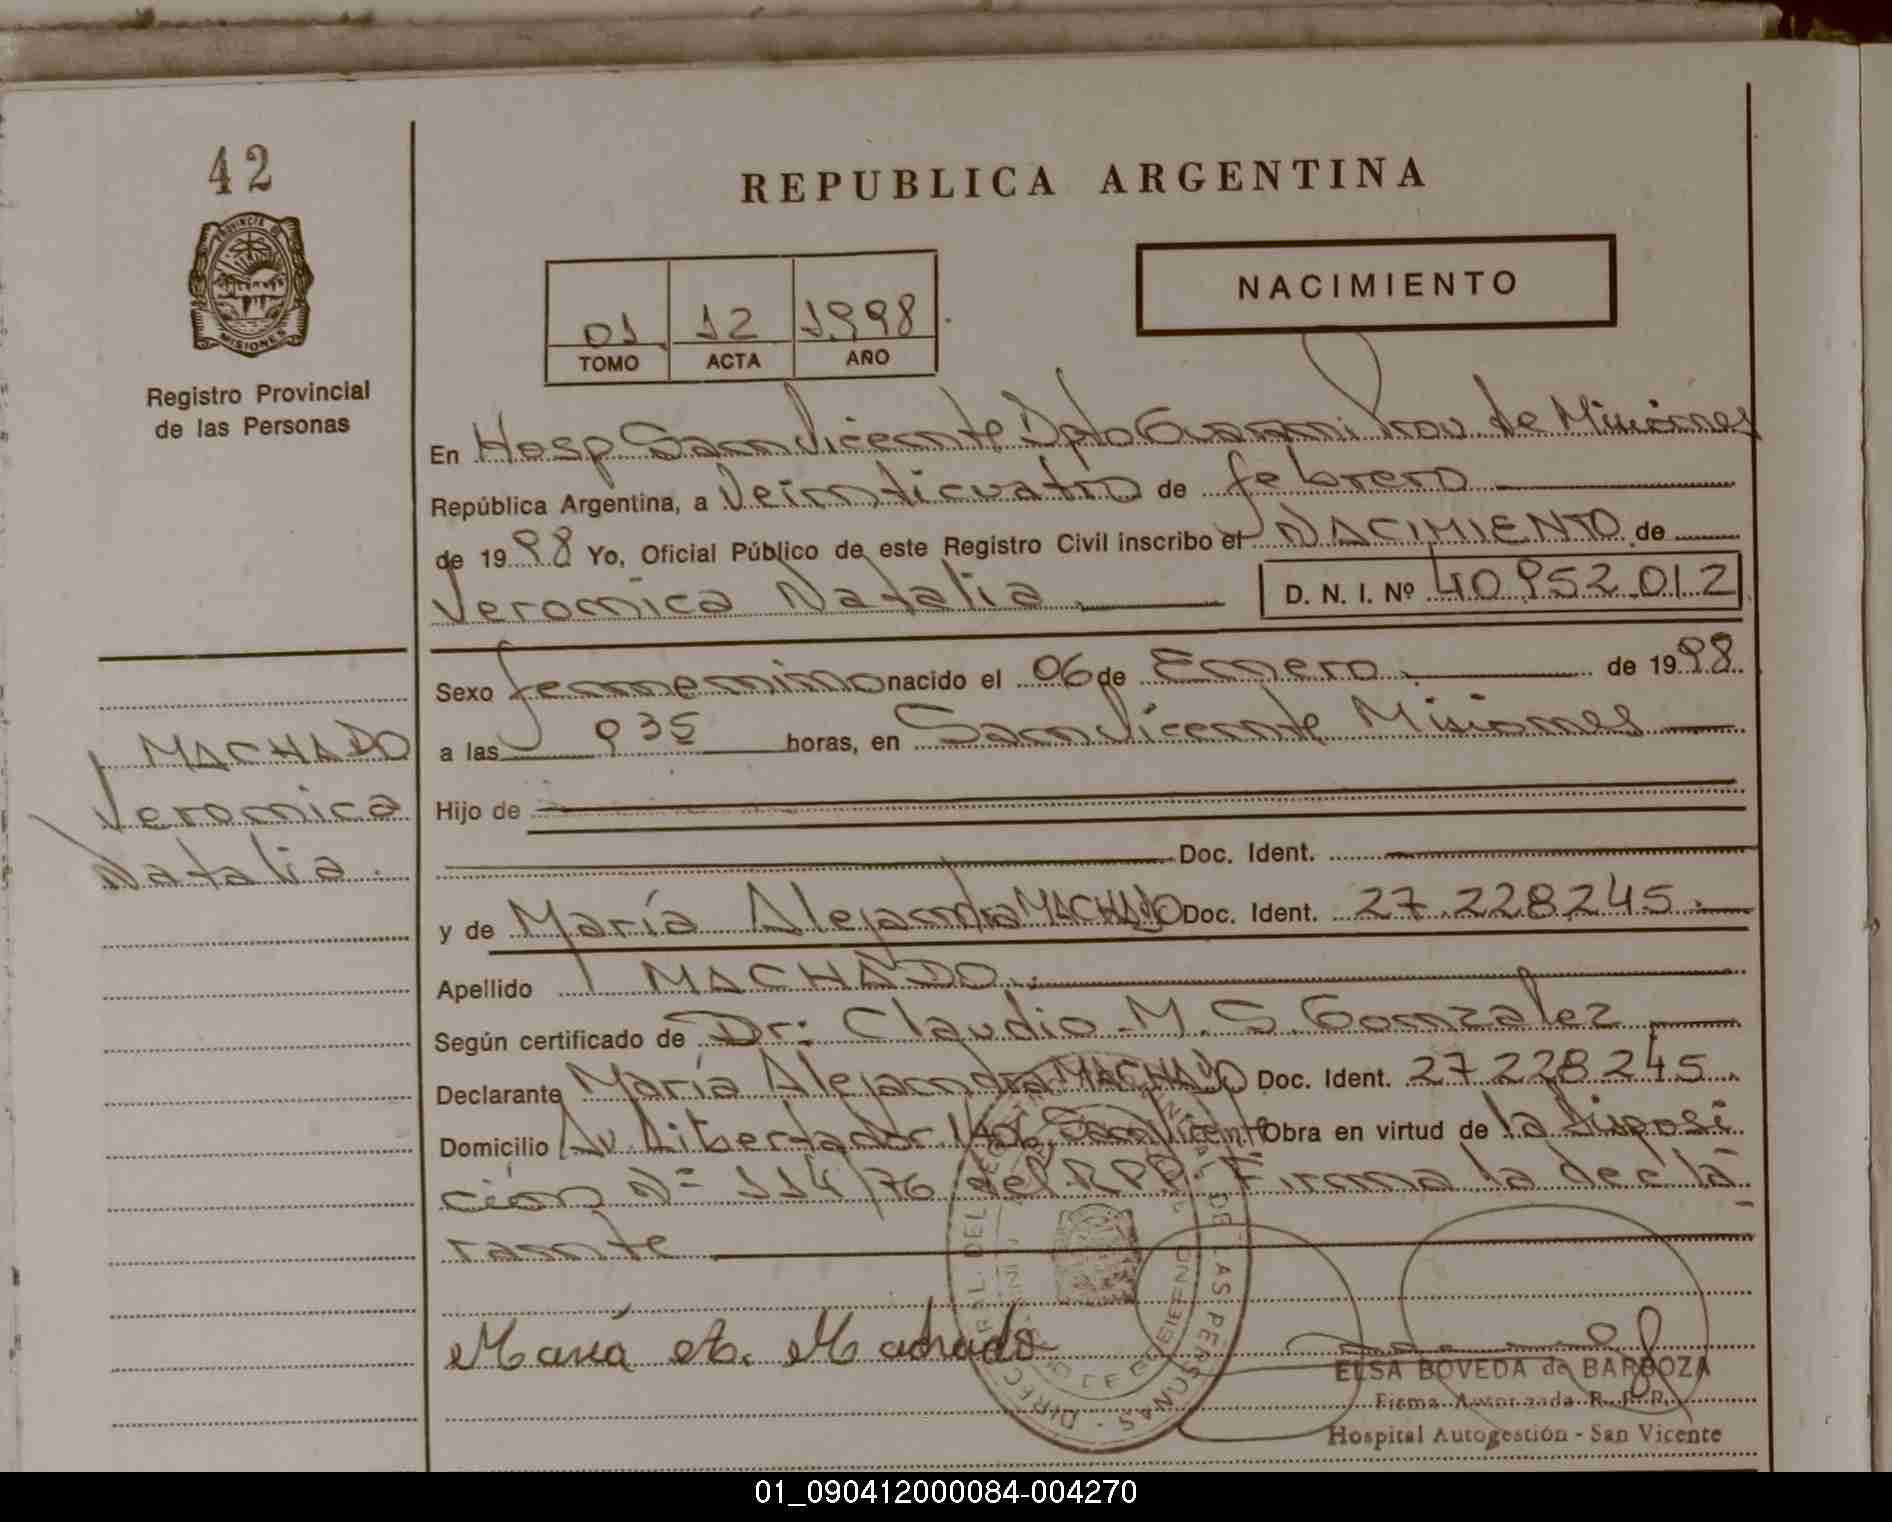 42
PROVINCIA DE
MISIONES
Registro Provincial
de las Personas
REPUBLICA ARGENTINA
01 12 1998
TOMO ACTA AÑO
NACIMIENTO
En Hosp San Vicente Dpto Guarani Prov. de Misiones
República Argentina, a Veinticuatro de febrero
de 1998 Yo, Oficial Público de este Registro Civil inscribo el NACIMIENTO de
Veronica Natalia D. N. I. Nº 40.952.012
Sexo femenino nacido el 06 de Enero de 1998
a las 935 horas, en San Vicente Misiones
MACHADO
Veronica
Natalia.
Hijo de
Doc. Ident.
y de María Alejandra MACHADO Doc. Ident. 27.228245.
Apellido MACHADO.
Según certificado de Dr: Claudio M. S. Gonzalez
Declarante María Alejandra MACHADO Doc. Ident. 27228245.
Domicilio Av. Libertador San Vicente Obra en virtud de la disposi
ción Nº 114/76 del R.P.P. Firma la decla
rante
María A. Machado
ELSA BOVEDA de BARBOZA
Firma Autorizada R.P.P.
Hospital Autogestión - San Vicente
01_090412000084-004270